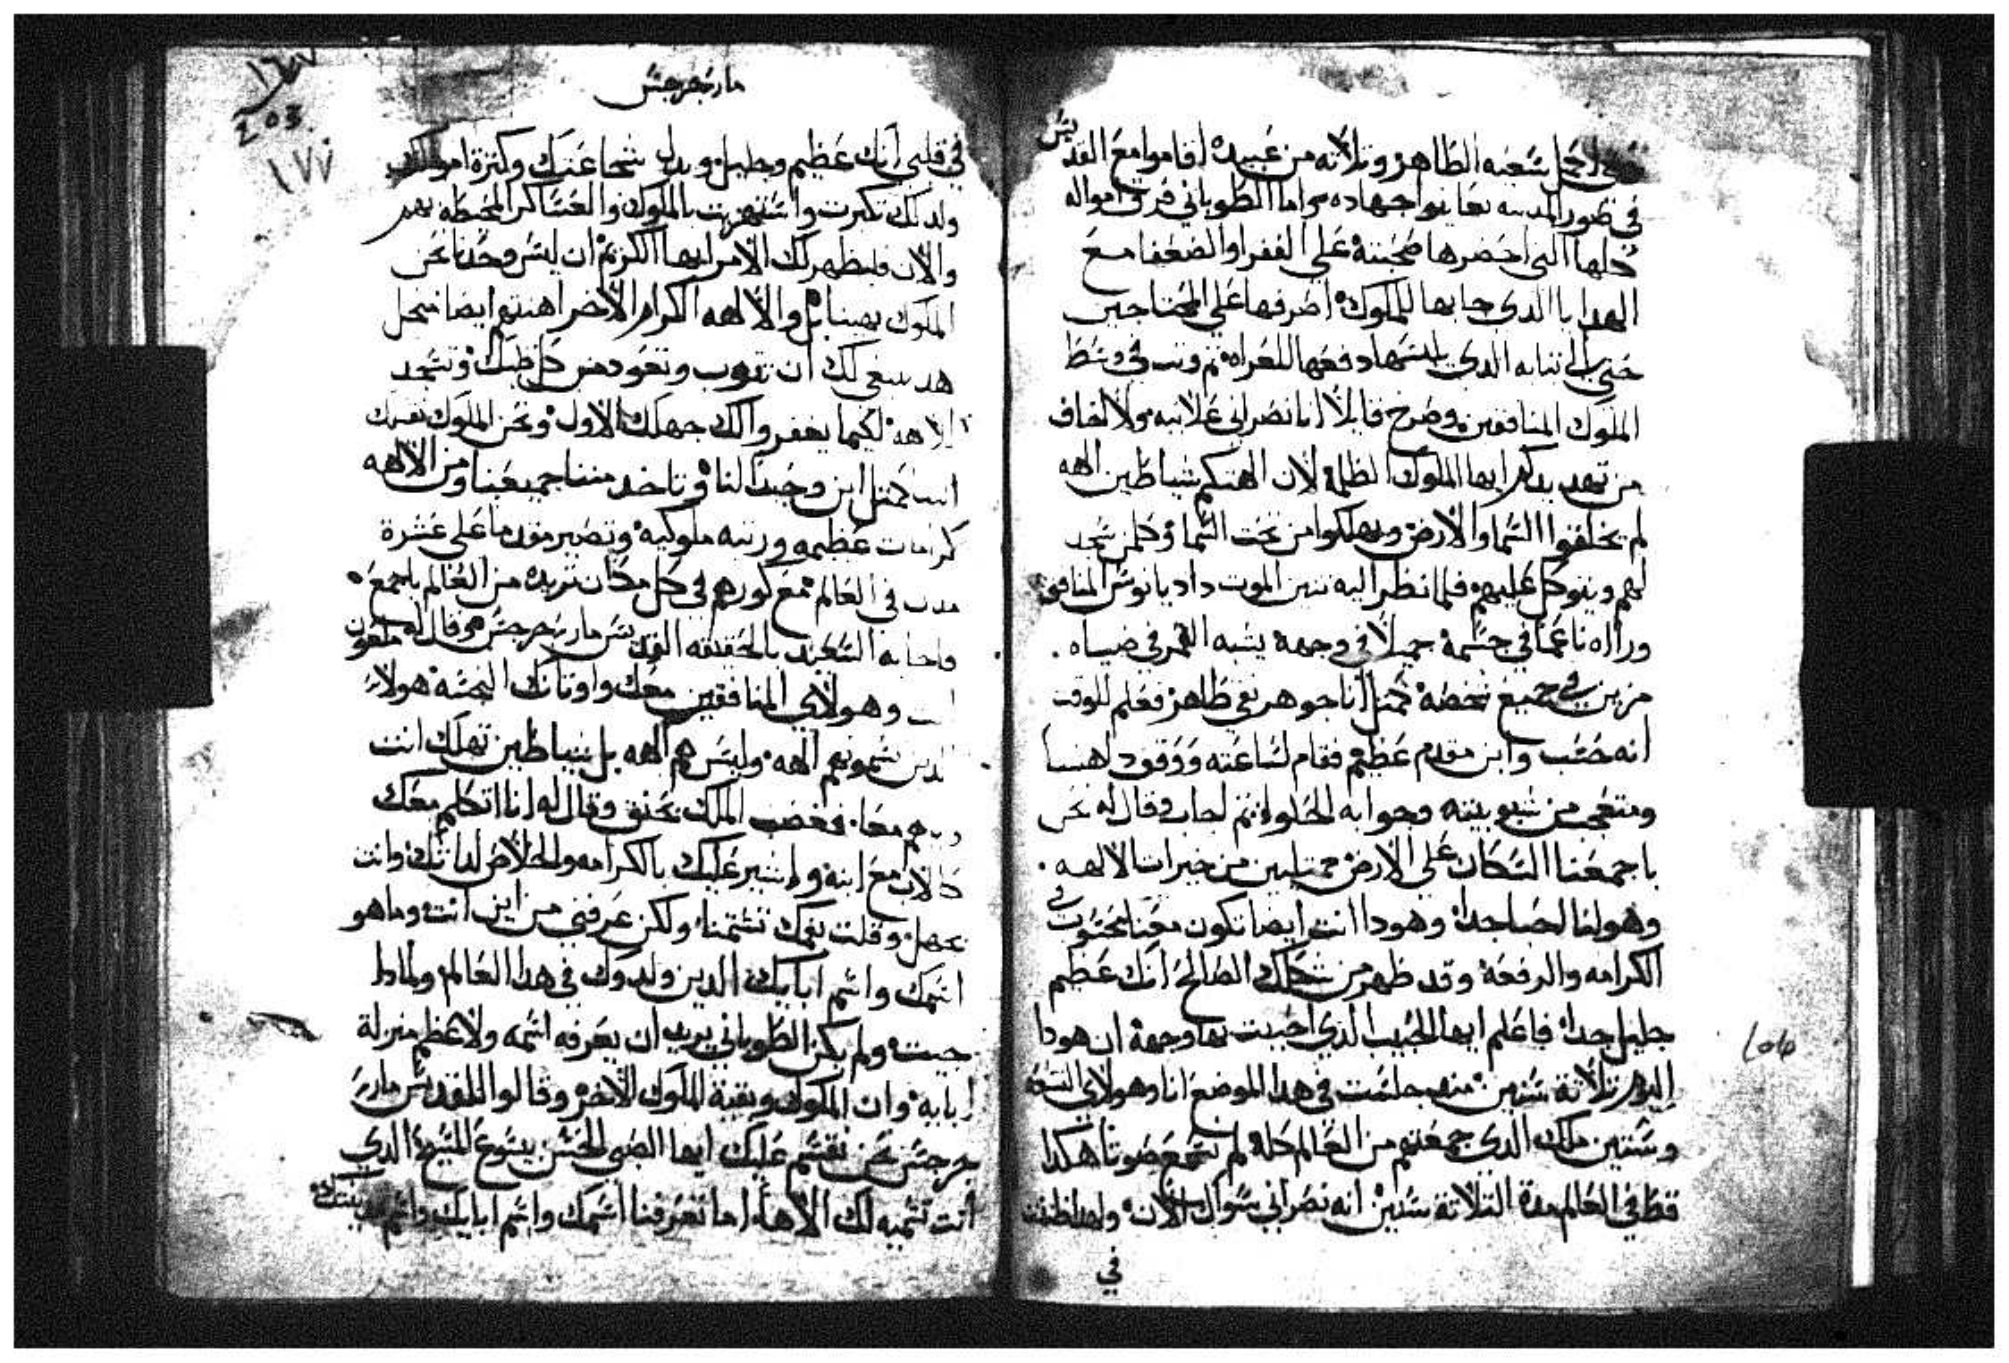 اجل شعبه الطاهر وتلاته من عبيده اقاموا مع القديس
في صور المدينه يعاينوا جهاده واما الطوباني فرق امواله
كلها التي احضرها صحبته علي الفقرا والضعفا مع
الهدايا الدي جابها للملوك اصرفها علي المحتاجين
حتي تيابه الدي دفعها للعراه تم وتب في وسط
الملوك المنافقين وصرخ قايلا انا نصراني علانيه ولا اخاف
من تهديدكم ايها الملوك الظلمه لان الهتكم شياطين الهه
لم يخلقوا السما والارض ويهلكوا من تحت السما وكلمن يسجد
لهم ويتوكل عليهم فلما نظر اليه تنين الموت داديانوس المنافق
وراه ناعما في جسمه جميلا في وجهه يشبه القمر في ضياه
مزين في جميع شخصه كمتل انا جوهر نقي طاهر فعلم للوقت
انه حسب وابن مقدم عظيم فقام لساعته ووقوف
ومتعجب من شبوبيته وجوابه الحلو تم اجاب وقال له نحن
باجمعنا السكان علي الارض ممتليين من خيرات الالهه
وهو لنا لحسا جدا وهودا انت ايضا تكون معنا محسوب في
الكرامه والرفعه وقد ظهر من شكلك الصالح انك عظيم
جليل جدا فاعلم ايها الحبيب الذي بها وجهه ان هودا
اليوم تلاتة سنين مند جلست في هدا الموضع انا وهولاي التسعه
وستين ملك الدي جمعتهم من العالم كله لم نسمع صوتا هكدا
قط في العالم مدة التلاتة سنين انه نصراني سواك الان ولهدا ظننت
في
مار جرجس
203
١٧٧
في قلبي انك عظيم وجليل ويدل شجاعتك وكترة اموالك
ولدلك تكبرت واستهزيت بالملوك والعساكر المحيطه بهم
والان فليظهر لك الامر ايها الكريم ان ليس وحدنا نحن
الملوك بهينا بل والالهه الكرام الاخر اهنتهم ايضا
هد ينبغي لك ان تتوب وتعود من كل ظنك وتسجد
للالهه لكيما يغفروا لك جهلك الاول ونحن الملوك
انت كمتل ابن وحيدا لنا وتاخد مننا جميعنا ومن الالهه
كرامات عظيمه ورتبه ملوكيه وتصير مقدما علي عشرة
مدن في العالم مع كورهم في كل مكان تريده من العالم باجمعه
فاجابه السعيد بالحقيقه القديس مار جرجس وقال له ملعون
انت وهولاي المنافقين معك واوتانك النجسه هولاي
الدين تسموهم الهه وليس هم الهه بل شياطين تهلك انت
وهم معا فغضب الملك بحنق وقال له انا اتكلم معك
كالاب مع ابنه واشير عليك بالكرامه والخلاص لداتك وانت
بجهل وقلت بفمك تشتمنا ولكن عرفني من اين انت وما هو
اسمك واسم ابايك الدين ولدوك في هدا العالم ولمادا
جيت ولم يكن الطوباني يريد ان يعرفه اسمه ولا عظم منزلة
ابايه وان الملوك وبقية الملوك الاخر وقالوا للقديس ماري
جرجس نحن نقسم عليك ايها الصبي الحسن بيسوع المسيح الدي
انت تسميه لك الاها اما تعرفنا اسمك واسم ابايك واسم مدينتك